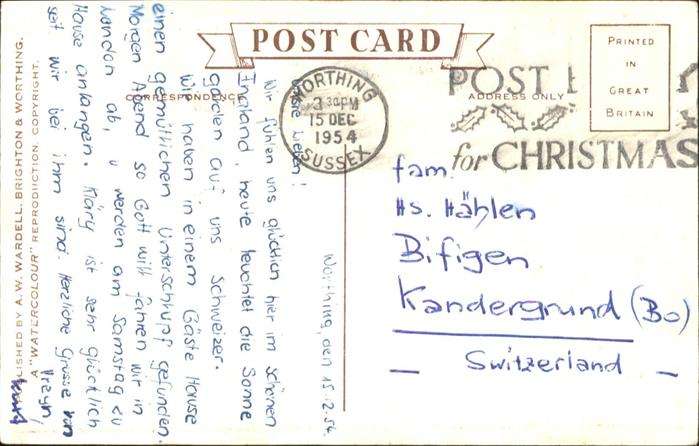 POST CARD
CORRESPONDENCE
ADDRESS ONLY
PRINTED
IN
GREAT
BRITAIN
WORTHING
3 30 PM
15 DEC
1954
SUSSEX
POST
for CHRISTMAS
Worthing, den 15.12.54
Lieben!
Wir fühlen uns glücklich hier im schönen
England, heute leuchtet die Sonne
golden auf uns Schweizer.
Wir haben in einem Gäste Hause
einen gemütlichen Unterschlupf gefunden.
Morgen Abend so Gott will fahren wir in
London ab, u werden am Samstag zu
Hause anlangen. Märy ist sehr glücklich
seit wir bei ihm sind. Herzliche Grüsse von
fam.
Hs. Hählen
Bifigen
Kandergrund (Bo)
— Switzerland —
LISHED BY A. W. WARDELL, BRIGHTON & WORTHING.
A "WATERCOLOUR" REPRODUCTION. COPYRIGHT.